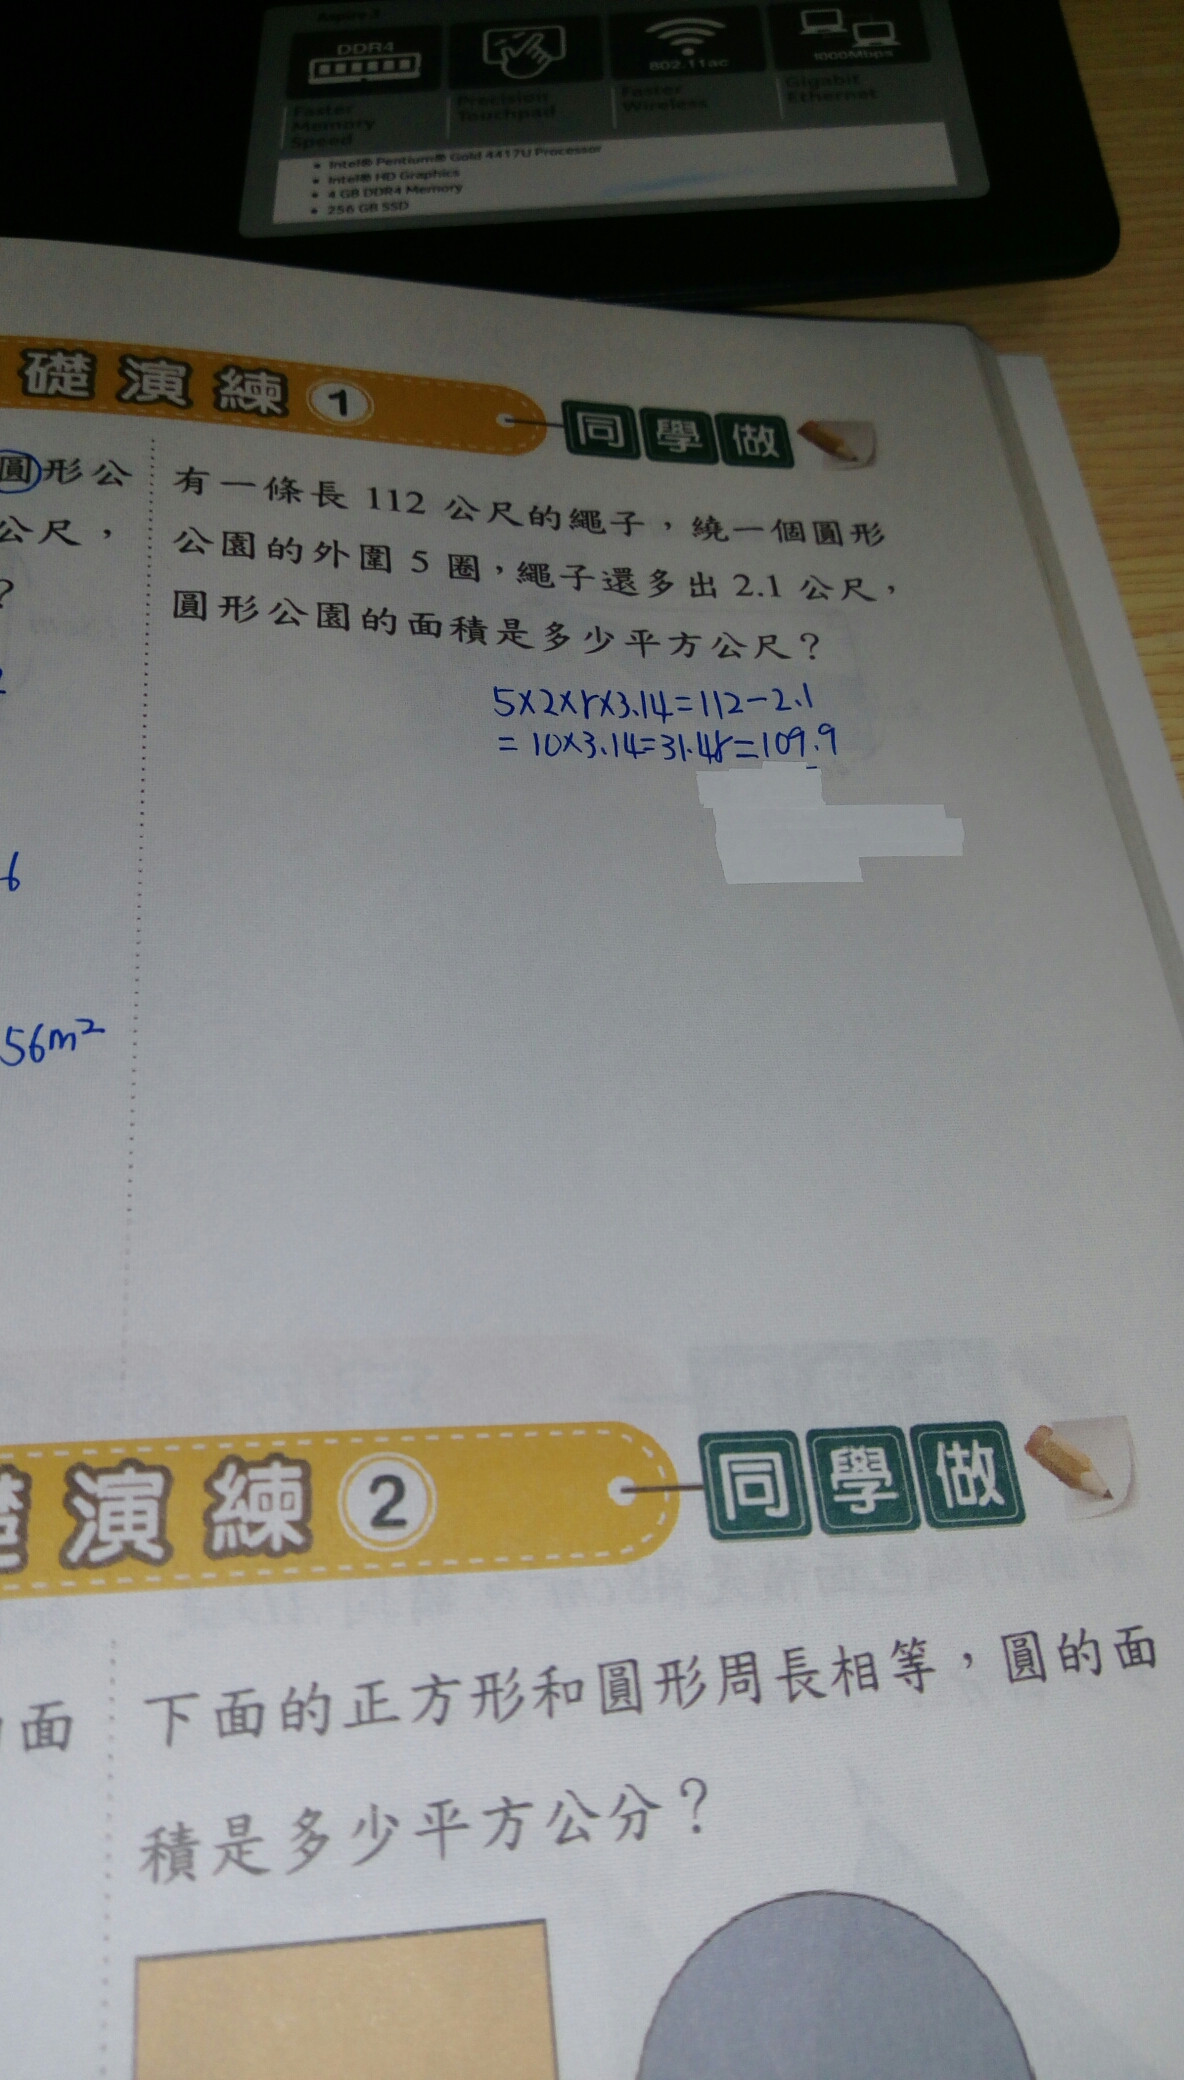 Aspire 3
DDR4
802.11ac
1000Mbps
Faster
Memory
Speed
Precision
Touchpad
Faster
Wireless
Gigabit
Ethernet
• Intel® Pentium® Gold 4417U Processor
• Intel® HD Graphics
• 4 GB DDR4 Memory
• 256 GB SSD
礎演練 1 同學做
圓形公
公尺，
?
6
56m²
有一條長 112 公尺的繩子，繞一個圓形
公園的外圍 5 圈，繩子還多出 2.1 公尺，
圓形公園的面積是多少平方公尺？
5×2×r×3.14=112-2.1
=10×3.14=31.4r=109.9
礎演練 2 同學做
面
下面的正方形和圓形周長相等，圓的面
積是多少平方公分？